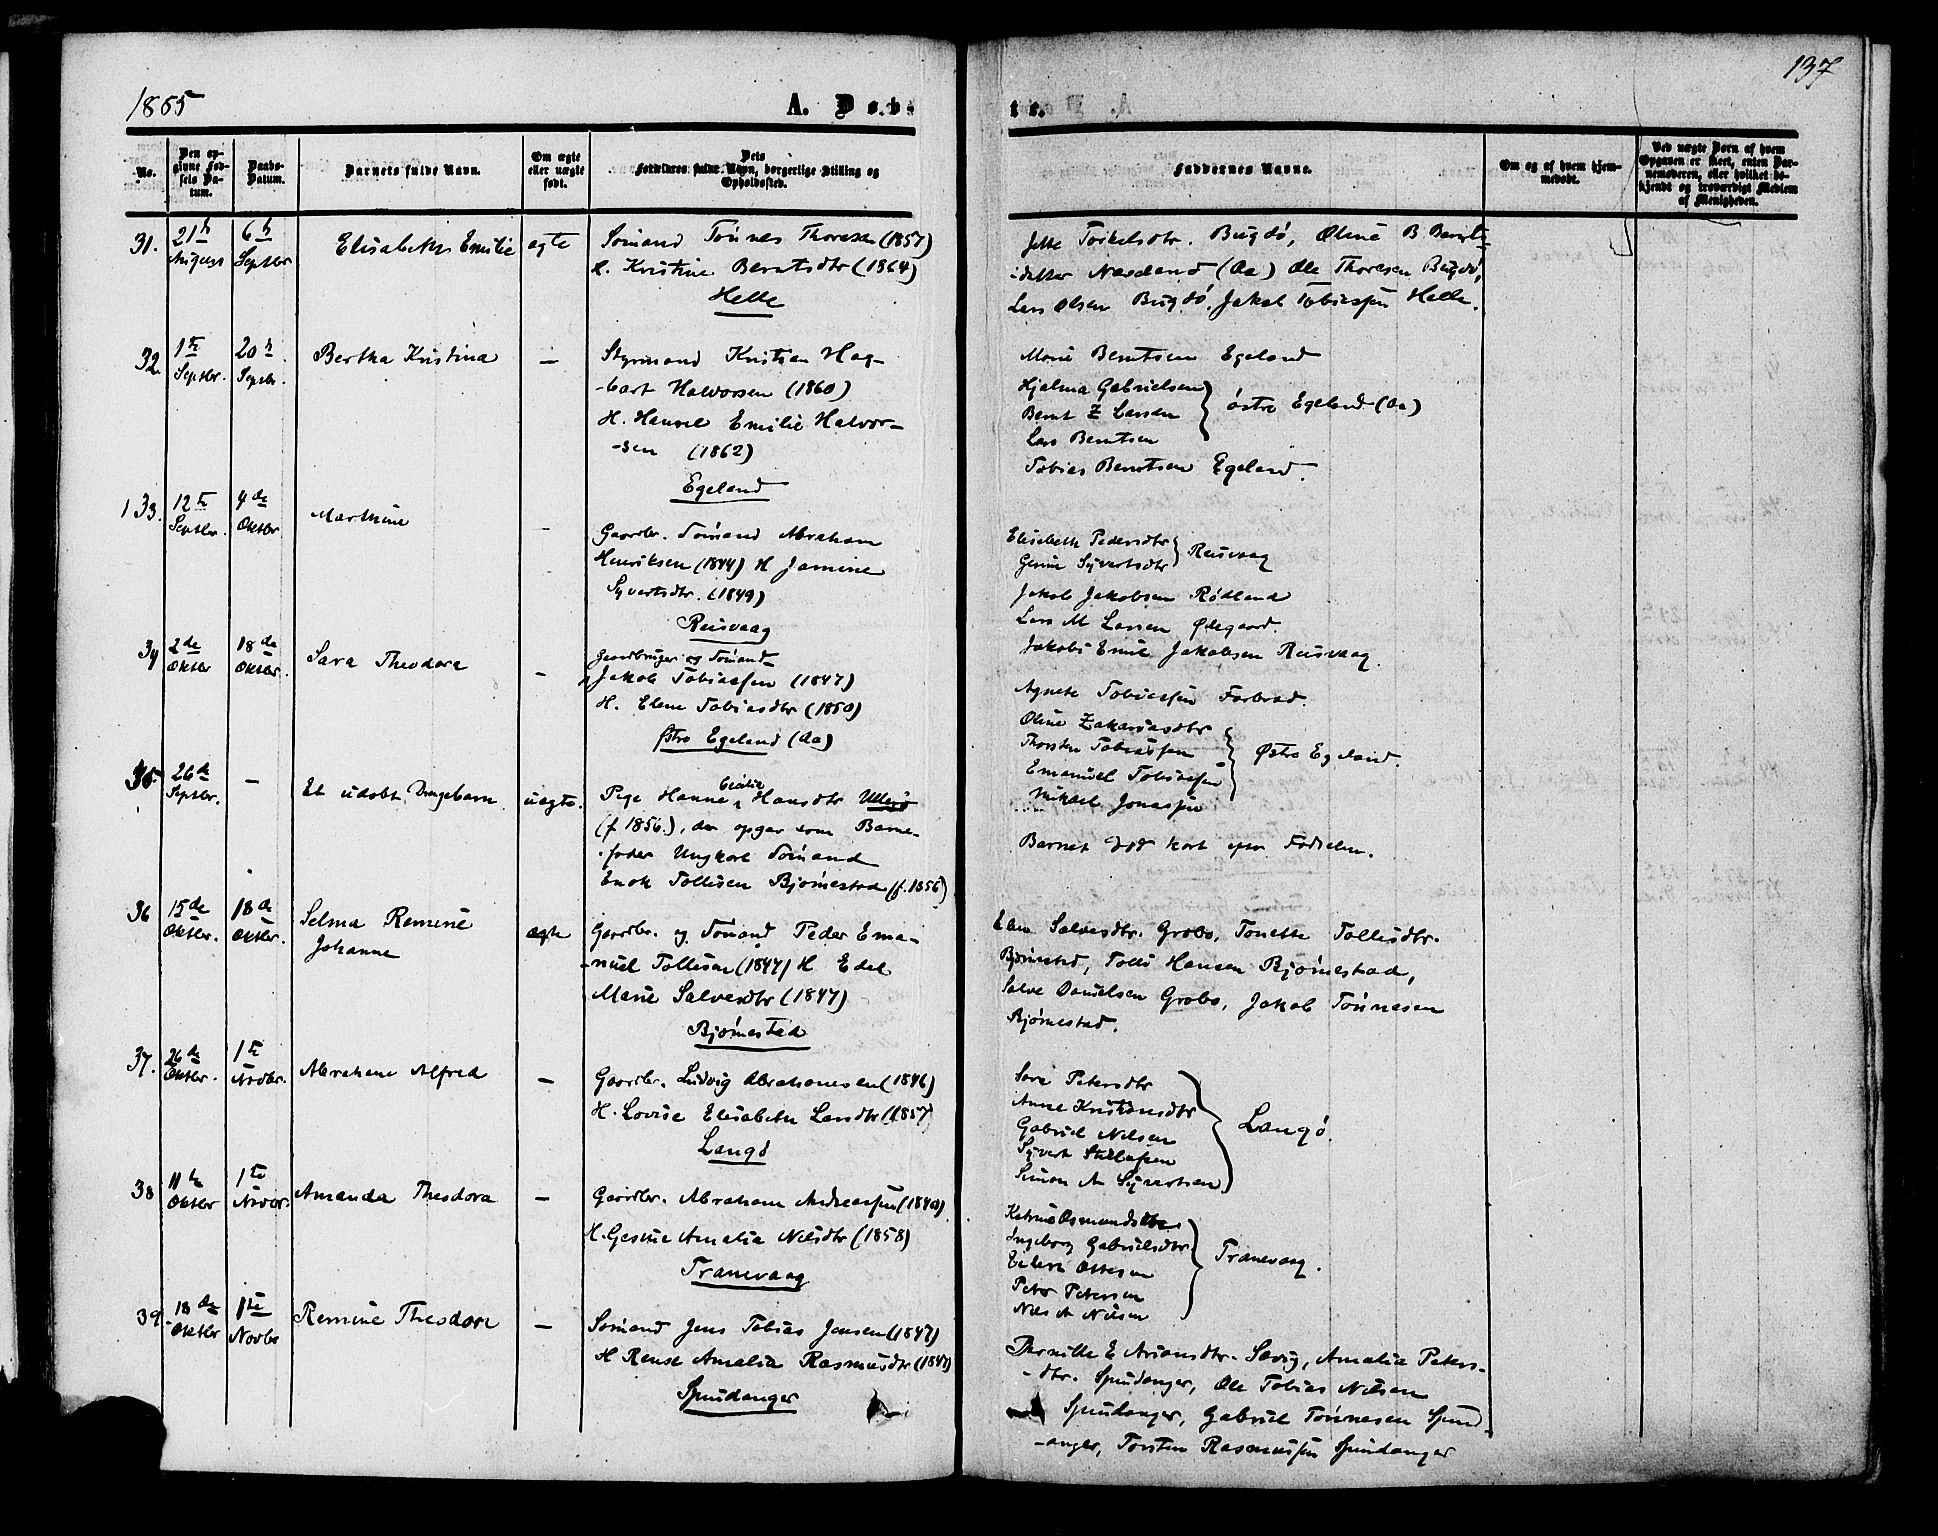 1885
A. Døbte.
137
No.
Den opgivne Fødsels Datum.
Daabs-Datum.
Barnets fulde Navn.
Om ægte eller uægte født.
Forældres fulde Navn, borgerlige Stilling og Opholdssted.
Faddernes Navne.
Om og af hvem hjemmedøbt.
Ved uægte Børn af hvem Opgaven er skeet, enten Barnemoderen, eller hvilket bekjendt og troværdigt Medlem af Menigheden.
31. 21 August 6 Septbr Elisabeth Emilie ægte Sømand Tønnes Thoresen (1857)
H. Kristine Berntsdtr (1864)
Helle
Torkelsdtr. Bugdø, Oline B Bernts-
datter Nordland (Aa) Ole Thoresen Bugdø,
Lars Olsen Bugdø, Jakob Tobiassen Helle.
32 1te Septbr. 20 Septbr. Bertha Kristina — Styrmand Kristian Hag-
-bart Halvorsen (1860)
H. Hanne Emilie Halvor-
-sen (1862)
Egeland
Marie Berntsen Egeland
Hjalma Gabrielsen
Bernt Z Larsen
Lars Berntsen
østre Egeland (Aa)
Tobias Berntsen Egeland.
133. 12te Septbr. 4de Oktbr Marthine - Gaardbr. Sømand Abraham
Henriksen (1844) H Jamine
Syvertsdtr. (1849)
Reisvaag
Elisebeth Pedersdtr
Syvertsdtr
Reisvaag
Jakob Jakobsen Rødland
Lars M Larsen Ødegaard.
Jakob Emil Jakobsen Reisvaag.
34 2de Oktbr 18de Oktbr. Sara Theodora - Gaardbruger og Sømand
Jakob Tobiassen (1847)
H. Elene Tobiasdtr (1850)
Østre Egeland (Aa)
Agnete Tobiassen Farbrod.
Oline Zakariasdtr
Thorsten Tobiassen
Emanuel Tobiassen
Mikael Jonassen
Østre Egeland.
35. 26de Septbr. - Et udøbt Drengebarn uægte. Pige Hanne Hansdtr Ullerø
(f 1856.), der opgav som Barne-
-fader Ungkarl Sømand
Enok Tollisen Bjørnestad (f. 1856)
Barnet død kort efter Fødselen.
36 15de Oktbr. 18de Oktbr. Selma Remine
Johanne
ægte Gaardbr. og Sømand Peder Ema-
-nuel Tollisen (1847) H Edel
Marie Salvesdtr (1847)
Bjørnestad
Elen Salvesdtr. Grobo, Tonette Tollisdtr.
Bjørnestad, Tolli Hansen Bjørnestad,
Salve Danielsen Grobo, Jakob Tønnesen
Bjørnestad.
37. 26de Oktbr. 1te Novbr. Abraham Alfred — Gaardbr. Ludvig Abrahamsen (1846)
H. Lovise Elisabeth Larsdtr (1857)
Langø
Sara Petersdtr
Anne Kristiansdtr
Gabriel Nilsen
Syvert
Simon A Syvertsen
Langø.
38 11te Oktbr 1te Novbr. Amanda Theodora — Gaardbr. Abraham Andreassen (1840)
H. Gesine Amalia Nilsdtr (1858)
Tranevaag
Katrine Osmundsdtr
Ingeborg Gabrielsdtr
Eilert Ottesen
Peter Petersen
Nils A Nilsen
Tranevaag.
39 18de Oktbr 1te Novbr Remine Theodora — Sømand Jens Tobias Jensen (1847)
H Rense Amalia Rasmusdtr (1847)
Spindanger
Pernille E Ariansdtr. Sævig, Amalia Peters-
-dtr. Spindanger, Ole Tobias Nilsen
Spindanger, Gabriel Tønnesen Spind-
-anger, Torsten Rasmussen Spindanger